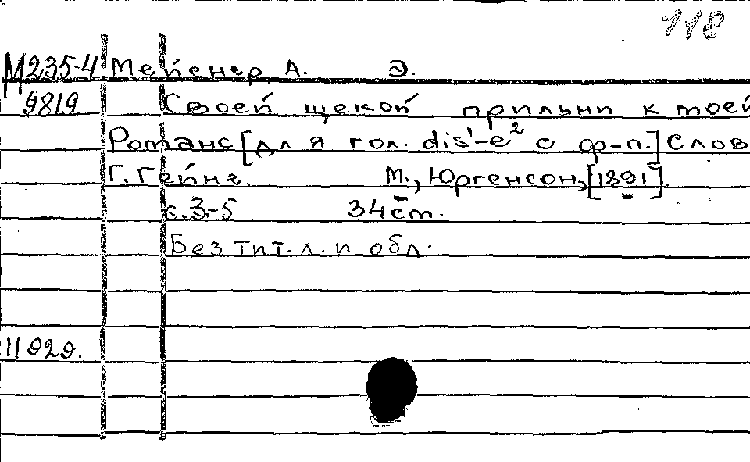 118
М235-4 Мейенер А. Э.
9819 Своей щекой прильни к моей
Романс [для гол. dis¹-e² с ф-п.] Слов
Г. Гейнe. М., Юргенсон, [1891].
с.3-5 34 см.
Без тит. л. и обл.
11929.